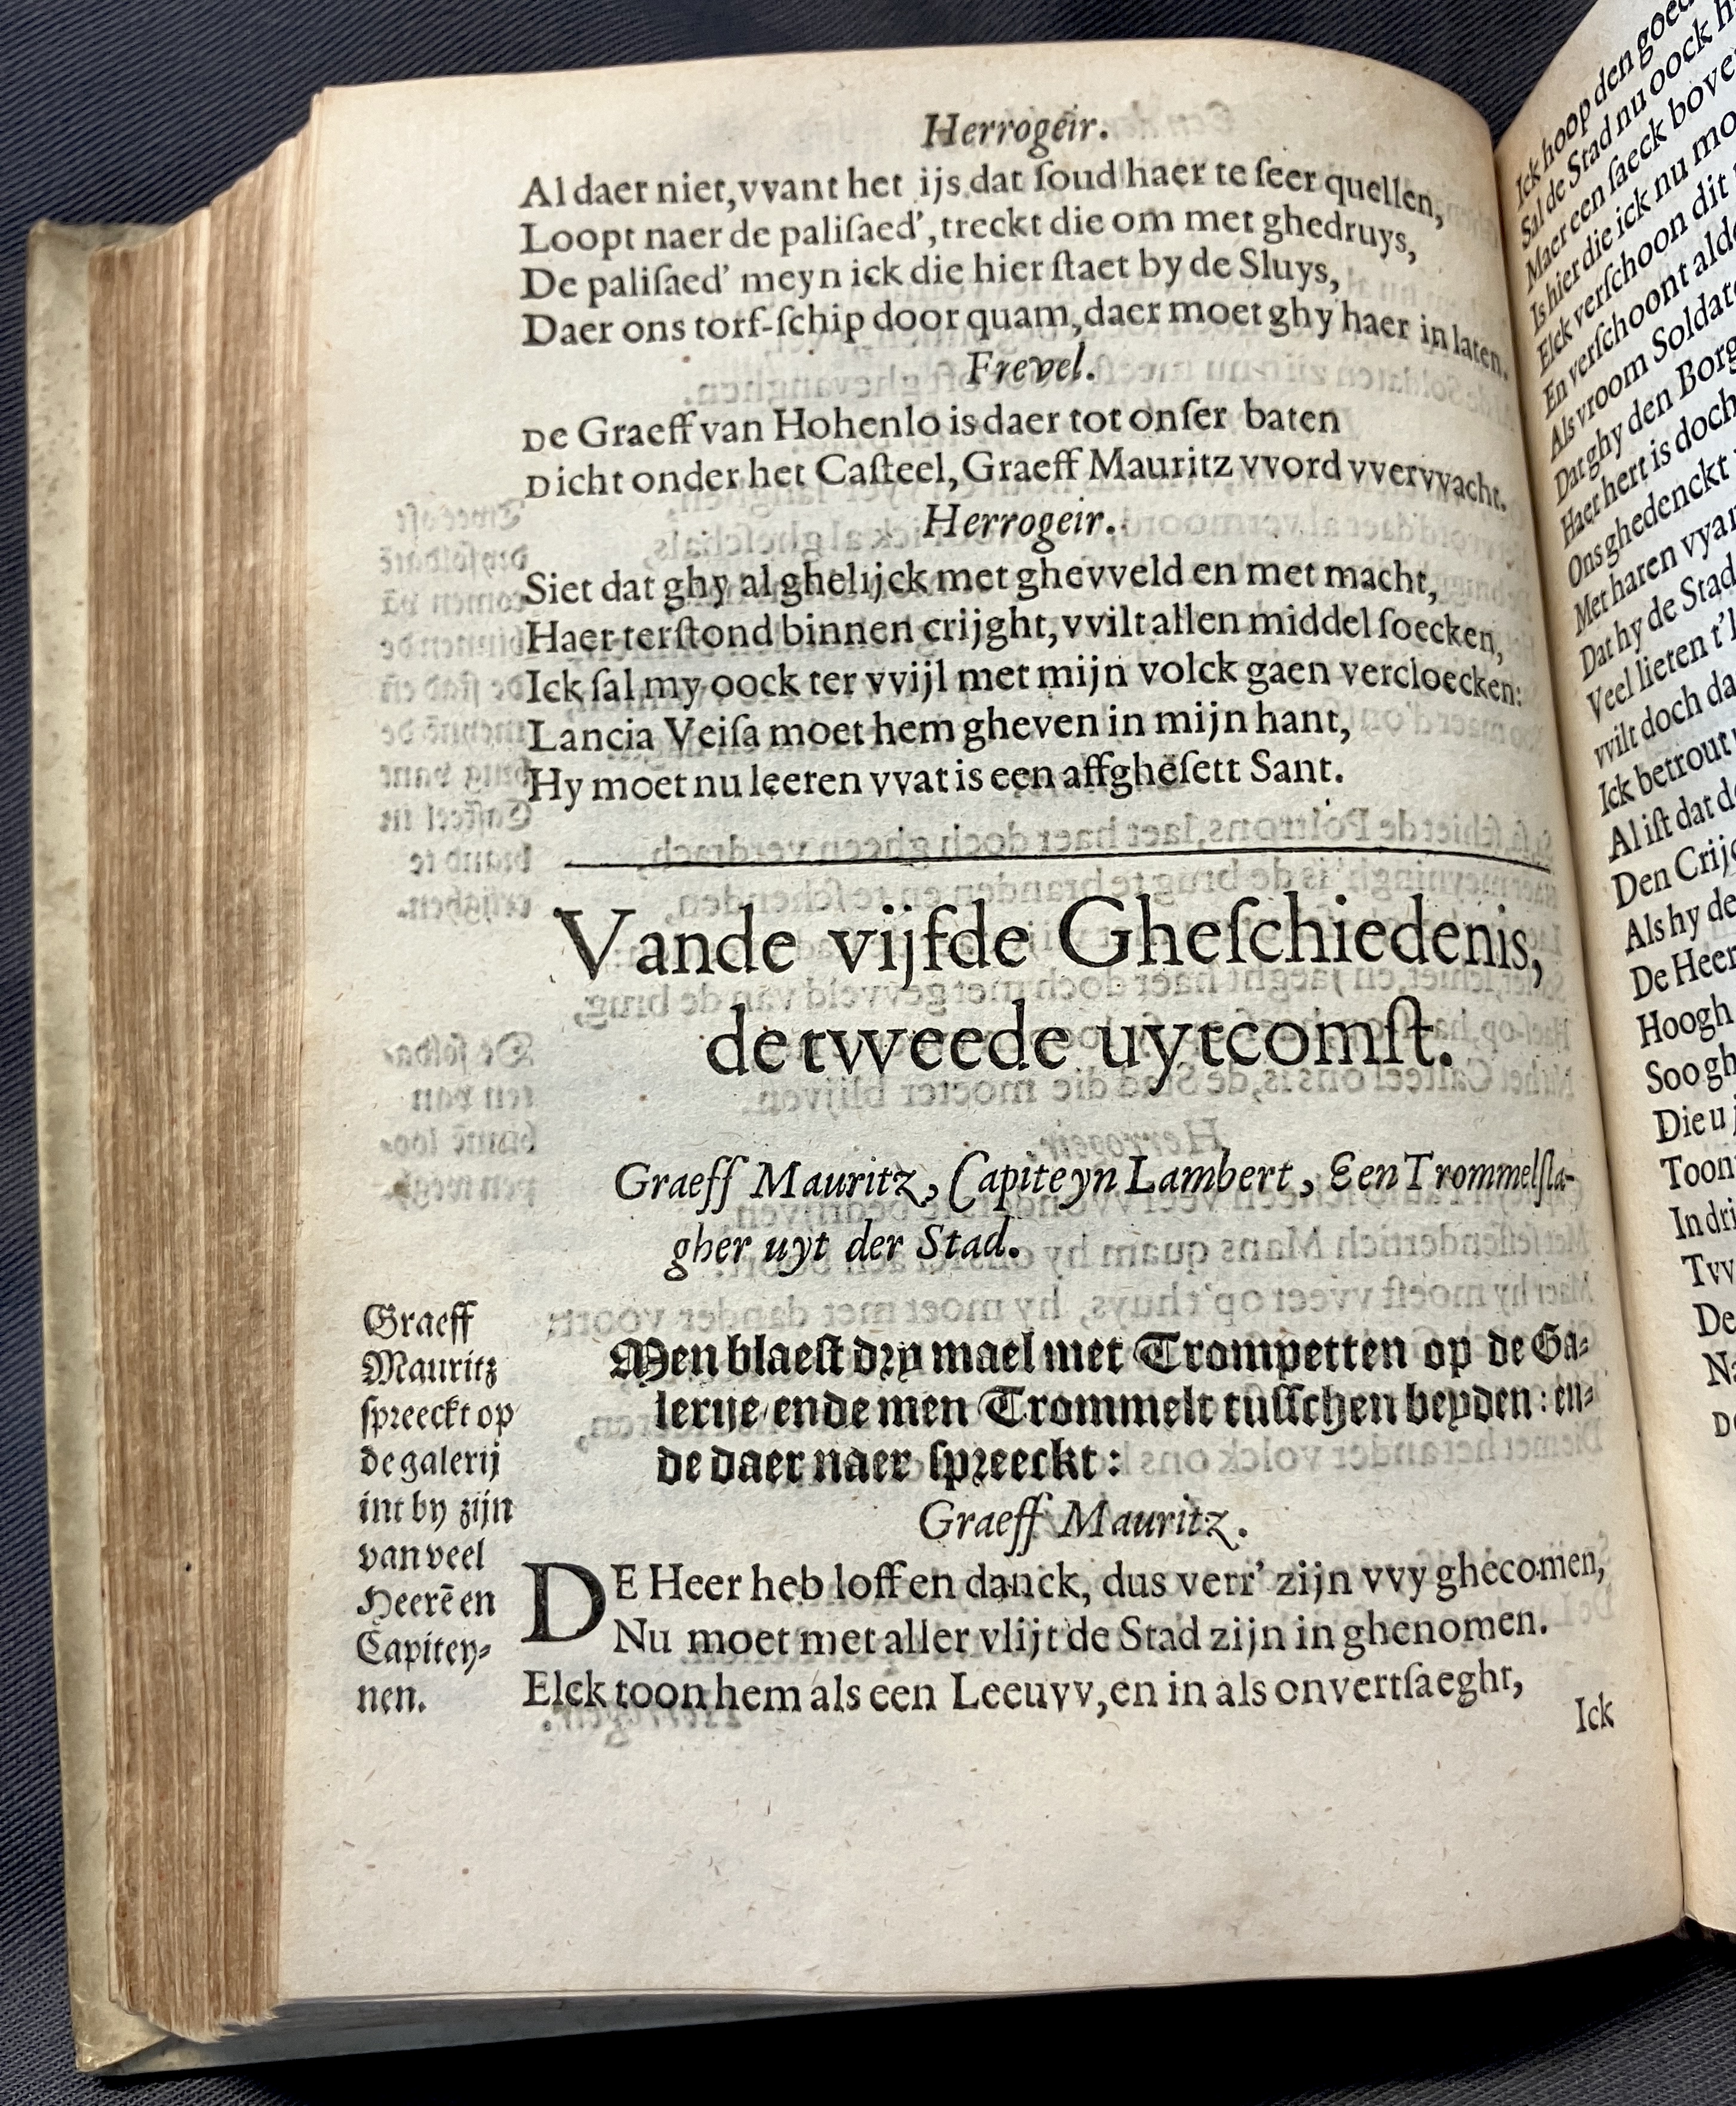 Herrogeir.
Al daer niet, vvant het ijs dat ſoud haer te ſeer quellen,
Loopt naer de paliſaed', treckt die om met ghedruys,
De paliſaed' meyn ick die hier ſtaet by de Sluys,
Daer ons torf-ſchip door quam, daer moet ghy haer in laten.
Frevel.
De Graeff van Hohenlo is daer tot onſer baten
Dicht onder het Caſteel, Graeff Mauritz vvord vvervvacht.
Herrogeir.
Siet dat ghy al ghelijck met ghevveld en met macht,
Haer terſtond binnen crijght, vvilt allen middel ſoecken,
Ick ſal my oock ter vvijl met mijn volck gaen vercloecken:
Lancia Veiſa moet hem gheven in mijn hant,
Hy moet nu leeren vvat is een affgheſett Sant.
Vande vijfde Gheſchiedenis,
de tweede uytcomſt.
Graeff Mauritz, Capiteyn Lambert, Een Trommelſla-
gher uyt der Stad.
Men blaeſt dry mael met Trompetten op de Ga-
lerije/ ende men Trommelt tuſſchen beyden: en-
de daer naer ſpreeckt:
Graeff Mauritz.
DE Heer heb loff en danck, dus verr' zijn vvy ghecomen,
Nu moet met aller vlijt de Stad zijn in ghenomen.
Elck toon hem als een Leeuvv, en in als onvertſaeght,
Ick
Graeff
Mauritz
ſpreeckt op
de galerij
int by zijn
van veel
Heerē en
Capitey-
nen.
Ick hoop den goed
Sal de Stad nu oock h
Maer een ſaeck bove
Is hier die ick nu mo
Elck verſchoon dit
En verſchoont alde
Als vroom Soldat
Dat ghy den Borg
Haer hert is doch
Ons ghedenckt
Met haren vyan
Dat hy de Stad
Veel lieten t'l
vvilt doch da
Ick betrout
Al iſt dat de
Den Crijg
Als hy de
De Heer
Hoogh
Soo gh
Die u
Toon
In dri
Tvv
De